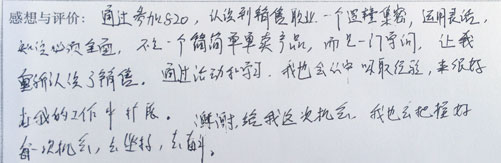 感想与评价：通过参加820，认识到销售职业一个逻辑集密，运用灵活，
知识必须全面，不是一个简简单单卖产品，而是一门学问，让我
重新认识了销售。通过活动和学习，我也会从中吸取经验，来很好
在我的工作中扩展。谢谢，给我这次机会，我也会把握好
每一次机会，去坚持，去奋斗。